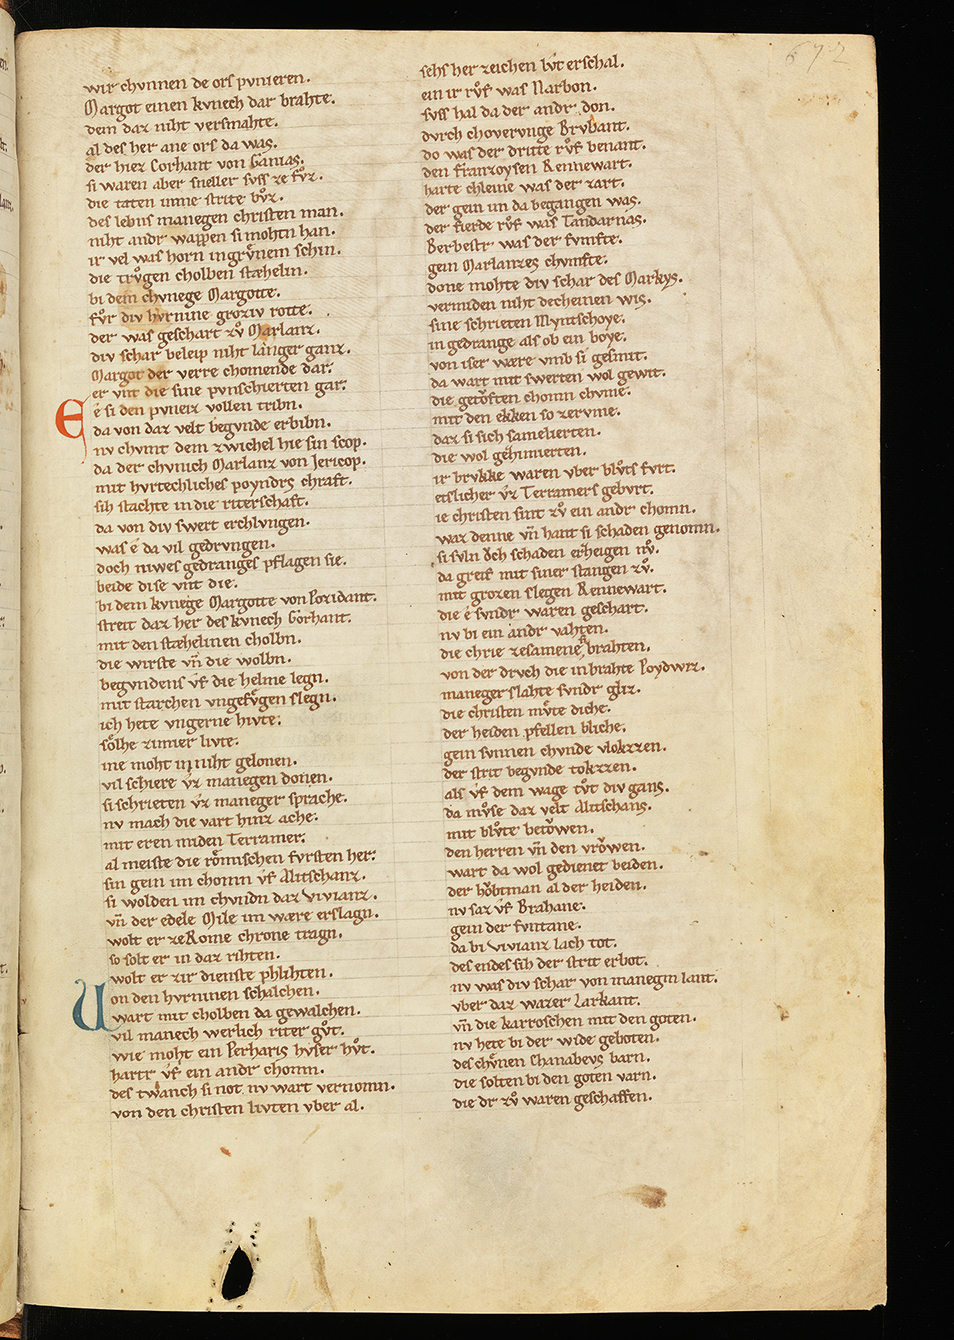 672
wir chvnnen de ors pvnieren.
Margot einen kvnech dar brahte.
dem daz niht versmahte.
al des her ane ors da was.
der hiez Gorhant von Ganias.
si waren aber sneller fvss ze fvͦz.
die taten unne strite bvͦz.
des lebns manegen christen man.
niht andr wappen si mohtn han.
ir vel was horn in grvͤnem schin.
die trvͦgen cholben stæhelin.
bi dem chvnege Margotte.
fvͤr div hvrnine groziv rotte.
der was geschart zvͦ Marlanz.
div schar beleip niht langer ganz.
Margot der verre chomende dar.
er vnt die sine pvnschierten gar.
E é si den pvneiz vollen tribn.
da von daz velt begvnde erbibn.
nv chvmt dem zwichel hie sin scop.
da der chvnich Marlanz von Jericop.
mit hvrtechliches poynders chraft.
sih stachte in die riterschaft.
da von div swert erchlvngen.
was é da vil gedrvngen.
doch niwes gedranges pflagen sie.
beide dise vnt die.
bi dem kvnege Margotte von Pozidant.
streit daz her des kvnech Gorhant.
mit den stæhelinen cholbn.
die wirste vn̄ die wolbn.
begvndens vf die helme legn.
mit starchen vngefvͤgen slegn.
ich hete vngerne hivte.
soͤlhe zimier livte.
ine moht ir niht gelonen.
vil schiere vz manegen donen.
si schrieten vz maneger sprache.
nv mach die vart hinz ache.
mit eren miden Terramer.
al meiste die roͤmischen fvrsten her.
sin gein im chomn vf Alitschanz.
si wolden im chvndn daz Vivianz.
vn̄ der edele Mile im wære erslagn.
wolt er ze Rome chrone tragn.
so solt er in daz rihten.
wolt er zir dienste phlihten.
Uon den hvrninen schalchen.
wart mit cholben da gewalchen.
vil manech werlich riter gvͦt.
wie moht ein Perharis hvser hvͦt.
hartr vf ein andr chomn.
des twanch si not. nv wart vernomn.
von den christen livten vber al.
sehs her zeichen lvͦt erschal.
ein ir rvͦf was Narbon.
svss hal da der andr don.
dvrch chovervnge Brvbant.
do was der dritte rvͦf benant.
den franzoysen Rennewart.
harte chleine was der zart.
der gein im da begangen was.
der fierde rvͦf was Tandarnas.
Berbestr was der fvmfte.
gein Marlanzes chvmfte.
done mohte div schar des Markys.
vermiden niht decheinen wis.
sine schrieten Mvntschoye.
in gedrange als ob ein boye.
von iser wære vmb si gesmit.
da wart mit swerten wol gewit.
die getoͮften chomn chvme.
mit den ekken so zervme.
daz si sich samelierten.
die wol gehimierten.
ir brvkke waren vber blvͦts fvrt.
etslicher vz Terramers gebvrt.
ie christen sint zvͦ ein andr chomn.
waz denne vn̄ hant si schaden genomn.
si svln doͮch schaden erheigen nvͦ.
da greif mit siner stangen zvͦ.
mit grozen slegen Rennewart.
die é svndr waren geschart.
nv bi ein andr vahten.
die chrie zesamene brahten.
von der drvch die in brahte Poydwiz.
maneger slahte svndr gliz.
die christen mvͦte diche.
der heiden pfellen bliche.
gein svnnen chvnde vlokzen.
der strit begvnde tokzen.
als vf dem wage tvͦt div gans.
da mvͦse daz velt Alitschans.
mit blvͦte betoͮwen.
den herren vn̄ den vroͮwen.
wart da wol gedienet beiden.
der hoͮbtman al der heiden.
nv saz vf Brahane.
gein der fvntane.
da bi Vivianz lach tot.
des endes sih der strit erbot.
nv was div schar von manegm lant.
vber daz wazer Larkant.
vn̄ die karroschen mit den goten.
nv hete bi der wide geboten.
des chvͤnen Shanabevs barn.
die solten bi den goten varn.
die dr zvͦ waren geschaffen.